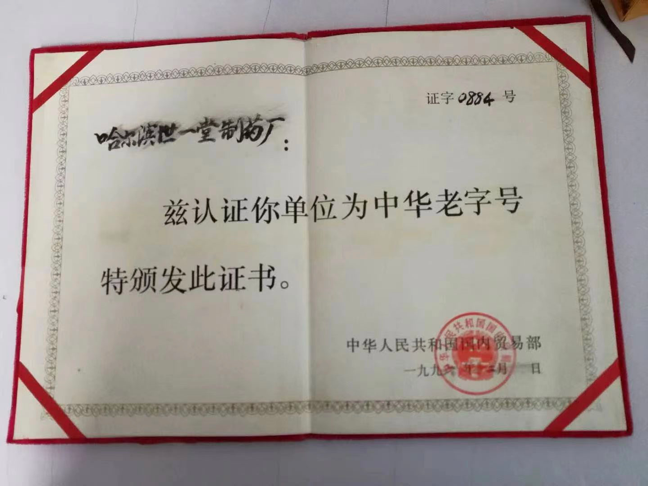 证字0884号
哈尔滨世一堂制药厂：
兹认证你单位为中华老字号
特颁发此证书。
中华人民共和国国内贸易部
一九九 年十二月 日